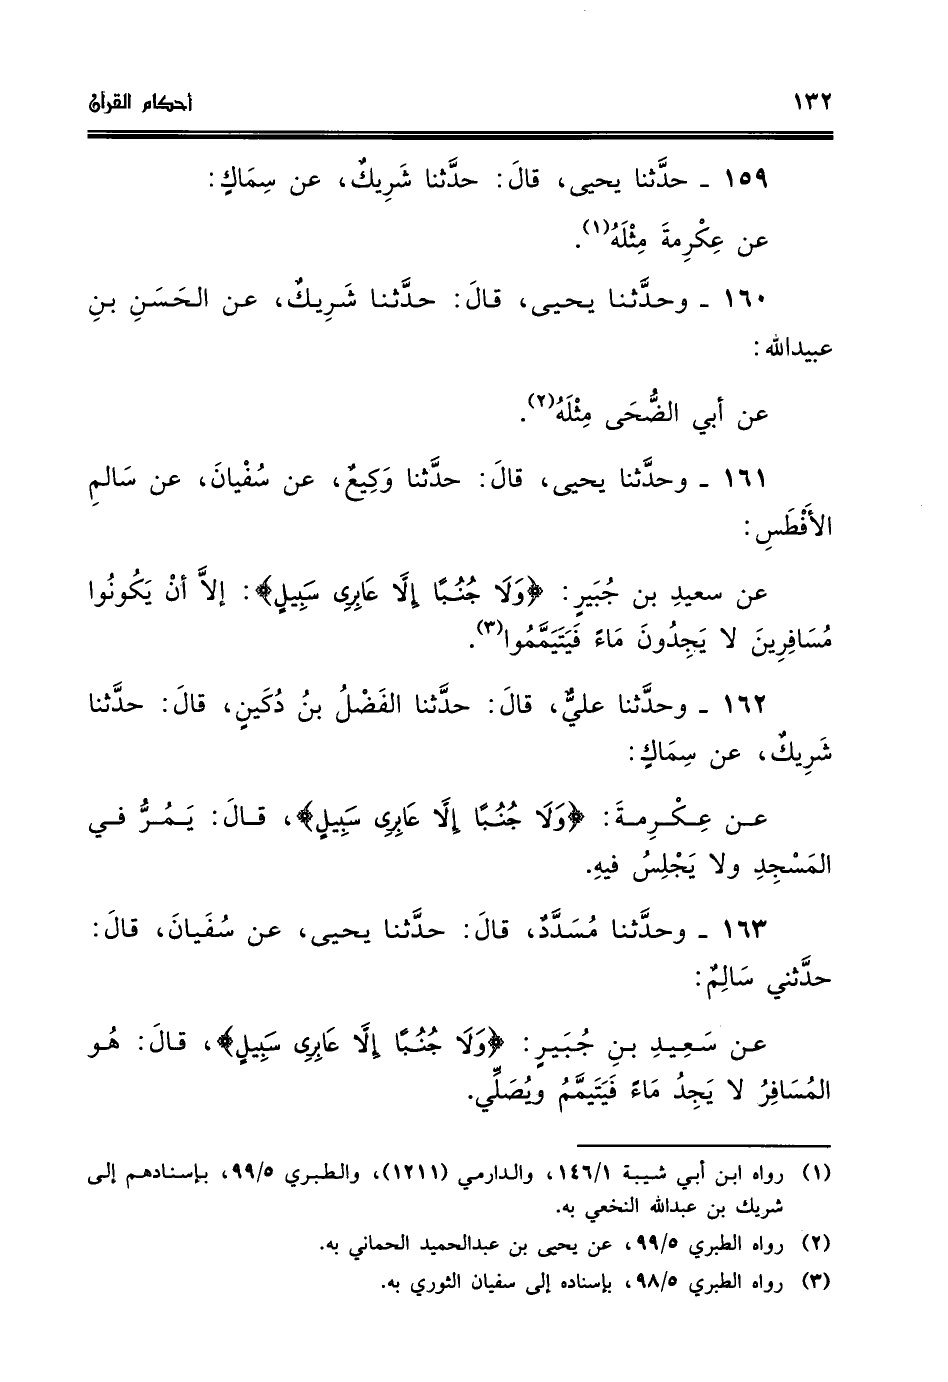 ١٣٢ أحكام القرآن
١٥٩ ـ حدَّثنا يحيى، قالَ: حدَّثنا شَرِيكٌ، عن سِمَاكٍ:
عن عِكْرِمةَ مِثْلَهُ(١).
١٦٠ ـ وحدَّثنا يحيى، قالَ: حدَّثنا شَرِيكٌ، عن الحَسَنِ بنِ
عبيدالله:
عن أبي الضُّحَى مِثْلَهُ(٢).
١٦١ ـ وحدَّثنا يحيى، قالَ: حدَّثنا وَكِيعٌ، عن سُفْيانَ، عن سَالمِ
الأَفْطَسِ:
عن سعيدِ بن جُبَيرٍ: ﴿وَلَا جُنُبًا إِلَّا عَابِرِى سَبِيلٍ﴾: إلاَّ أنْ يَكُونُوا
مُسَافِرِينَ لا يَجِدُونَ مَاءً فَيَتَيَمَّمُوا(٣).
١٦٢ ـ وحدَّثنا عليٌّ، قالَ: حدَّثنا الفَضْلُ بنُ دُكَينٍ، قالَ: حدَّثنا
شَرِيكٌ، عن سِمَاكٍ:
عن عِكْرِمةَ: ﴿وَلَا جُنُبًا إِلَّا عَابِرِى سَبِيلٍ﴾، قالَ: يَمُرُّ في
المَسْجِدِ ولا يَجْلِسُ فيهِ.
١٦٣ ـ وحدَّثنا مُسَدَّدٌ، قالَ: حدَّثنا يحيى، عن سُفَيانَ، قالَ:
حدَّثني سَالِمٌ:
عن سَعِيدِ بنِ جُبَيرٍ: ﴿وَلَا جُنُبًا إِلَّا عَابِرِى سَبِيلٍ﴾، قالَ: هُو
المُسَافِرُ لا يَجِدُ مَاءً فَيَتَيمَّمُ ويُصَلِّي.
(١) رواه ابن أبي شيبة ١٤٦/١، والدارمي (١٢١١)، والطبري ٩٩/٥، بإسنادهم إلى
شريك بن عبدالله النخعي به.
(٢) رواه الطبري ٩٩/٥، عن يحيى بن عبدالحميد الحماني به.
(٣) رواه الطبري ٩٨/٥، بإسناده إلى سفيان الثوري به.